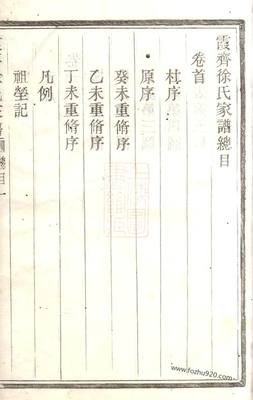 霞齊徐氏家譜總目
卷首
杜序
原序
癸未重脩序
乙未重脩序
丁未重脩序
凡例
祖塋記
總目一
www.fozhu920.com